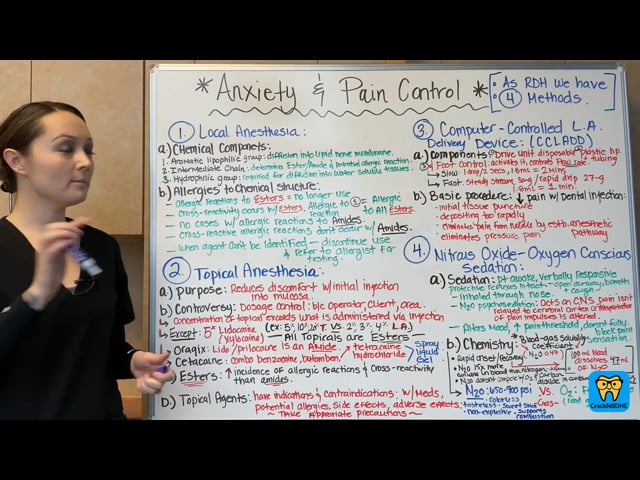 * Anxiety & Pain Control *
As RDH we have
④ Methods.
1. Local Anesthesia:
a) Chemical Componets:
1. Aromatic lipophilic group: diffusion into lipid nerve membrane.
2. Intermediate Chain: determines Ester/Amide & potential allergic reaction.
3. Hydrophilic group: required for diffusion into water soluble tissues.
b) Allergies to Chemical Structure:
- Allergic reactions to Esters = no longer use
- cross-reactivity occurs w/ Esters. Allergic to ① = Allergic reaction to all Esters.
- no cases w/ allergic reactions to Amides.
- cross-reactive allergic reactions don't occur w/ Amides.
- when agent can't be identified - discontinue use
& refer to Allergist for
testing.
2. Topical Anesthesia:
a) purpose: Reduces discomfort w/ initial injection
into mucosa.
b) Controversy: Dosage control: b/c operator, client, area.
↳ Concentration of topical exceeds what is administered via injection
↳ Except: 5% Lidocaine
(Xylocaine)
(ex: 5%, 10%, 20% T. VS 2%, 3%, 4% L.A.)
All Topicals are Esters
Oraqix: Lido/prilocaine is an Amide.
Cetacaine: combo benzocaine, butamben,
tetracaine
hydrochloride
Spray
liquid
Gel
Esters: ↑ incidence of allergic reactions & cross-reactivity
than amides.
D.) Topical Agents: have indications & contraindications: w/ Meds,
potential allergies, side effects, adverse effects;
~ Take Appropriate precautions ~
3. Computer-Controlled L.A.
Delivery Device: (CCLADD)
a) Components: Drive unit disposable plastic hp.
Foot Control: activates it, controls Flow rate tubing
↳ Slow: 1 drop/2 secs, 1.8mL = 2 mins.
↳ Fast: Steady stream 30g/rapid drip 27-g
1.8mL = 1 min.
b) Basic procedure: ↓ pain w/ Dental injection:
- initial tissue puncture
- depositing too rapidly
- eliminates pain from needle by estb. anesthetic
pathway
- eliminates pressure pain
4. Nitrous Oxide-Oxygen Conscious
Sedation:
a) Sedation: pt awake, verbally responsive
protective reflexes intact - open airway, breath
+ cough
- inhaled through nose
- N₂O psychosedation: acts on CNS. pain isn't
relayed to cerebral cortex & interpretation
of pain impulses is altered.
- Alters Mood, ↑ pain threshold, doesn't fully
block pain
sensation.
b) Chemistry:
Blood-gas solubility
coefficient
• Rapid onset/recovery
• N₂O 15x more
soluble in blood than nitrogen
100 mL blood
dissolves 47 mL
of N₂O
N₂O: 650-900 psi
VS.
O₂:
• colorless
tasteless • sweet smell
non-explosive • supports
combustion
Gas
CrackNBDHE